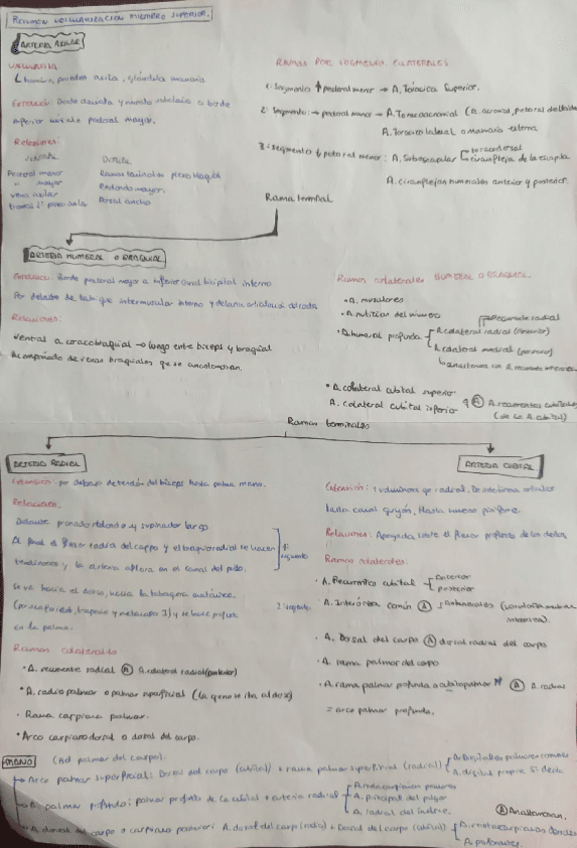 RESUMEN VASCULARIZACION MIEMBRO SUPERIOR.
ARTERIA AXILAR
Extensión: Desde clavícula y
inferior pectoral mayor.
Relaciones:
Pectoral menor
" mayor
vena axilar
Ramos plexo braquial
Redondo mayor.
Dorsal ancho
RAMAS POR SEGMENTOS
1º Segmento ↑ pectoral menor → A. Torácica Superior.
2º Segmento: → pectoral menor → A. Toracoacromial (R. acromial, pectoral, deltoidea
A. Toraco lateral o mamaria externa
3º Segmento ↓ pectoral menor: A. Subescapular toracodorsal
circunfleja de la escápula
A. circunflejas humerales anterior y posterior.
Rama terminal
ARTERIA HUMERAL O BRAQUIAL
Extensión: Borde pectoral mayor a inferior canal bicipital interno
Por delante de tabique intermuscular interno y delante articulación del codo
Relaciones:
ventral a coracobraquial → luego entre bíceps y braquial
Acompañada de venas braquiales que se anastomosan.
Ramas colaterales HUMERAL O BRAQUIAL.
• A. musculares
• A. nutricia del húmero
• A. humeral profunda
Recurrente radial
A. colateral radial (anterior)
A. colateral medial (posterior)
anastomosa con A. recurrente
• A. colateral cubital superior
A. colateral cubital inferior y (A) A. recurrentes cubitales
(de la A. cubital)
Ramas terminales
ARTERIA RADIAL
Extensión: por debajo de tendón del bíceps hasta palma mano.
Relaciones:
Delante pronador redondo y supinador largo
Al final el flexor radial del carpo y el braquiorradial se hacen
tendinosos y la arteria aflora en el canal del pulso.
1º segmento
Se va hacia el dorso, hacia la tabaquera anatómica.
trapecio y metacarpo I) y se hace profunda
en la palma.
2º segmento
Ramas colaterales
• A. recurrente radial (A) A. colateral radial (anterior)
• A. radiopalmar o palmar superficial (la que no se va al dorso)
• Rama carpiana palmar.
• Arco carpiano dorsal o dorsal del carpo.
ARTERIA CUBITAL
Extensión: + voluminosa que radial.
hasta canal guyón, hasta hueso pisiforme.
Relaciones: Apoyada sobre el flexor profundo de los dedos
Ramas colaterales:
• A. Recurrente cubital
anterior
posterior
• A. Interósea común (A)
• A. Dorsal del carpo (A) dorsal radial del carpo
• A. rama palmar del carpo
• A. rama palmar profunda o cubitopalmar (A) A. radial
= arco palmar profundo.
MANO (Red palmar del carpo):
→ Arco palmar superficial: Dorsal del carpo (cubital) + rama palmar superficial (radial)
A. Digitales palmares comunes
A. digital propia 5º dedo
→ A. palmar profundo: palmar profunda de la cubital + arteria radial
A. metacarpianas palmares
A. principal del pulgar
A. radial del índice.
(A) Anastomosan.
→ A. dorsal del carpo o carpiano posterior: A. dorsal del carpo (radial) + Dorsal del carpo (cubital)
A. metacarpianas dorsales
A. perforantes.